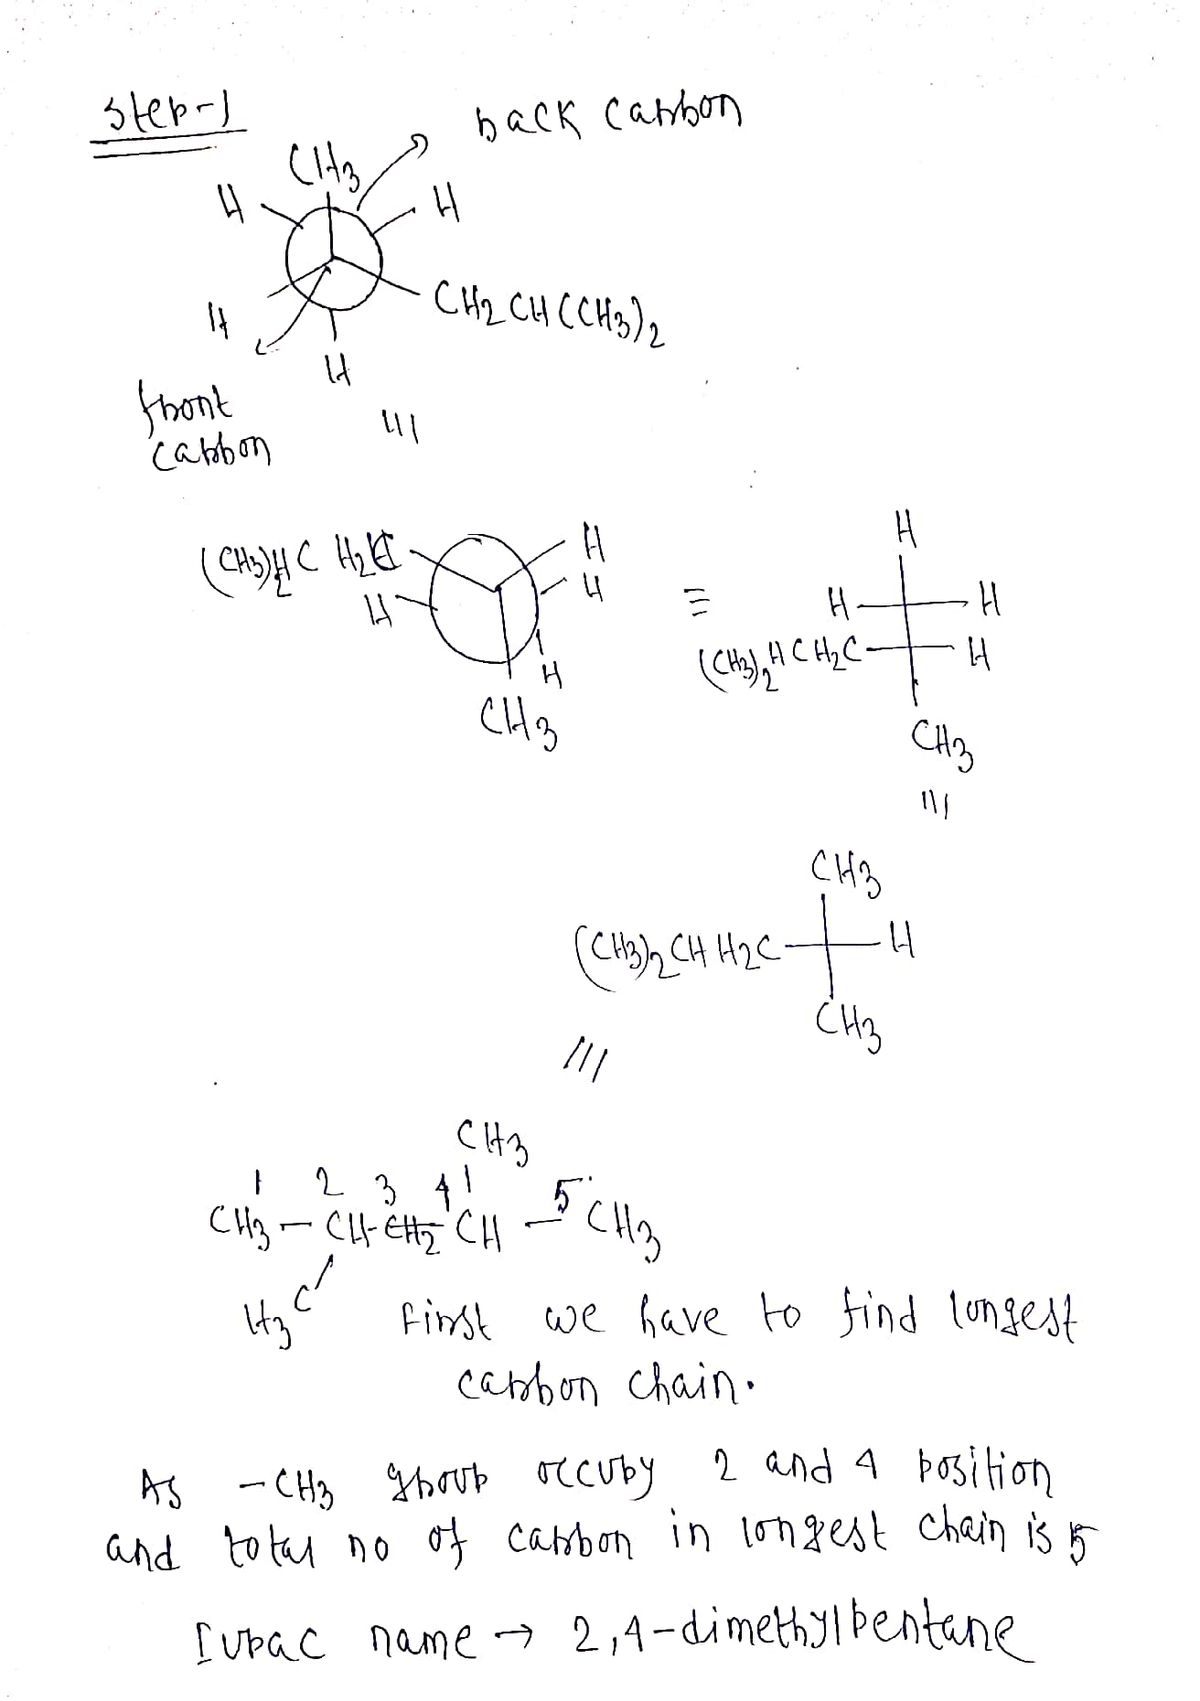 Step-1
back carbon
CH3
H
H
H
CH2CH(CH3)2
H
front
carbon
H
H
H
H
CH3
≡
H
H
H
(CH3)2HCH2C
H
CH3
CH3
(CH3)2CHH2C
H
CH3
CH3
1 2 3 4 5
CH3-CH-CH2-CH-CH3
H3C
First we have to find longest
carbon chain.
As -CH3 group occupy 2 and 4 position
and total no of carbon in longest chain is 5
Iupac name → 2,4-dimethylpentane